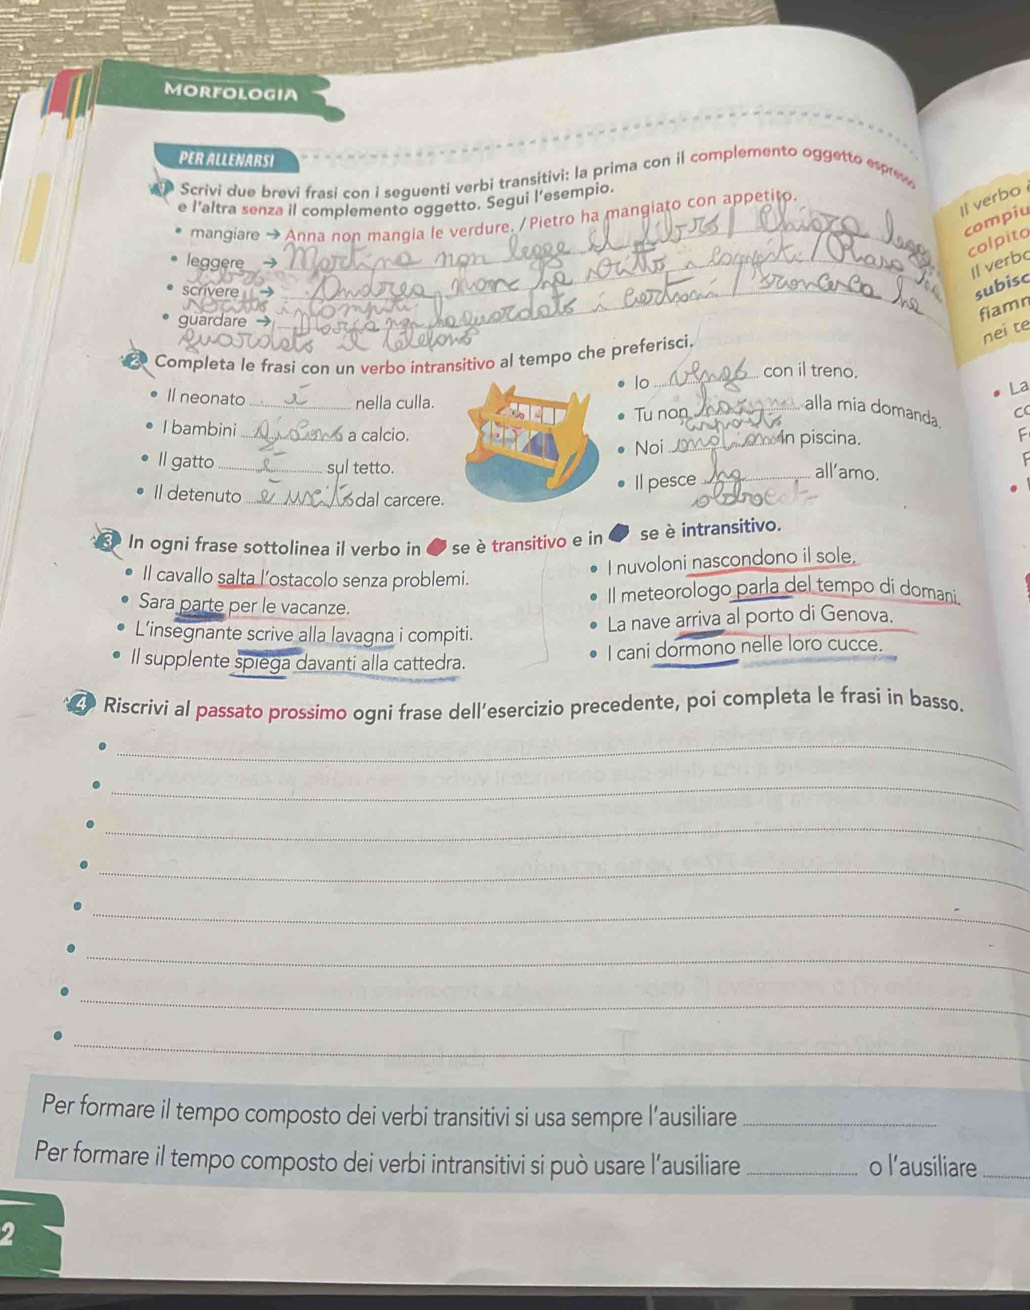 MORFOLOGIA
PER ALLENARSI
1 Scrivi due brevi frasi con i seguenti verbi transitivi: la prima con il complemento oggetto espresso
e l'altra senza il complemento oggetto. Segui l'esempio.
• mangiare → Anna non mangia le verdure. / Pietro ha mangiato con appetito.
• leggere → Martina non legge il libro / Chiara legge
• scrivere → Andrea non ha
• guardare → ha guardato i cartoni / Francesca ha
guardato il telefono
2 Completa le frasi con un verbo intransitivo al tempo che preferisci.
• Il neonato è nella culla.
• I bambini giocano a calcio.
• Il gatto è sul tetto.
• Il detenuto è uscito dal carcere.
• Io vengo con il treno.
• Tu non alla mia domanda.
• Noi in piscina.
• Il pesce ha all'amo.
3 In ogni frase sottolinea il verbo in se è transitivo e in se è intransitivo.
• Il cavallo salta l'ostacolo senza problemi.
• Sara parte per le vacanze.
• L'insegnante scrive alla lavagna i compiti.
• Il supplente spiega davanti alla cattedra.
• I nuvoloni nascondono il sole.
• Il meteorologo parla del tempo di domani.
• La nave arriva al porto di Genova.
• I cani dormono nelle loro cucce.
4 Riscrivi al passato prossimo ogni frase dell'esercizio precedente, poi completa le frasi in basso.
Per formare il tempo composto dei verbi transitivi si usa sempre l'ausiliare
Per formare il tempo composto dei verbi intransitivi si può usare l'ausiliare o l'ausiliare
2
Il verbo
compiu
colpito
Il verbo
subisc
fiamm
nei te
• La